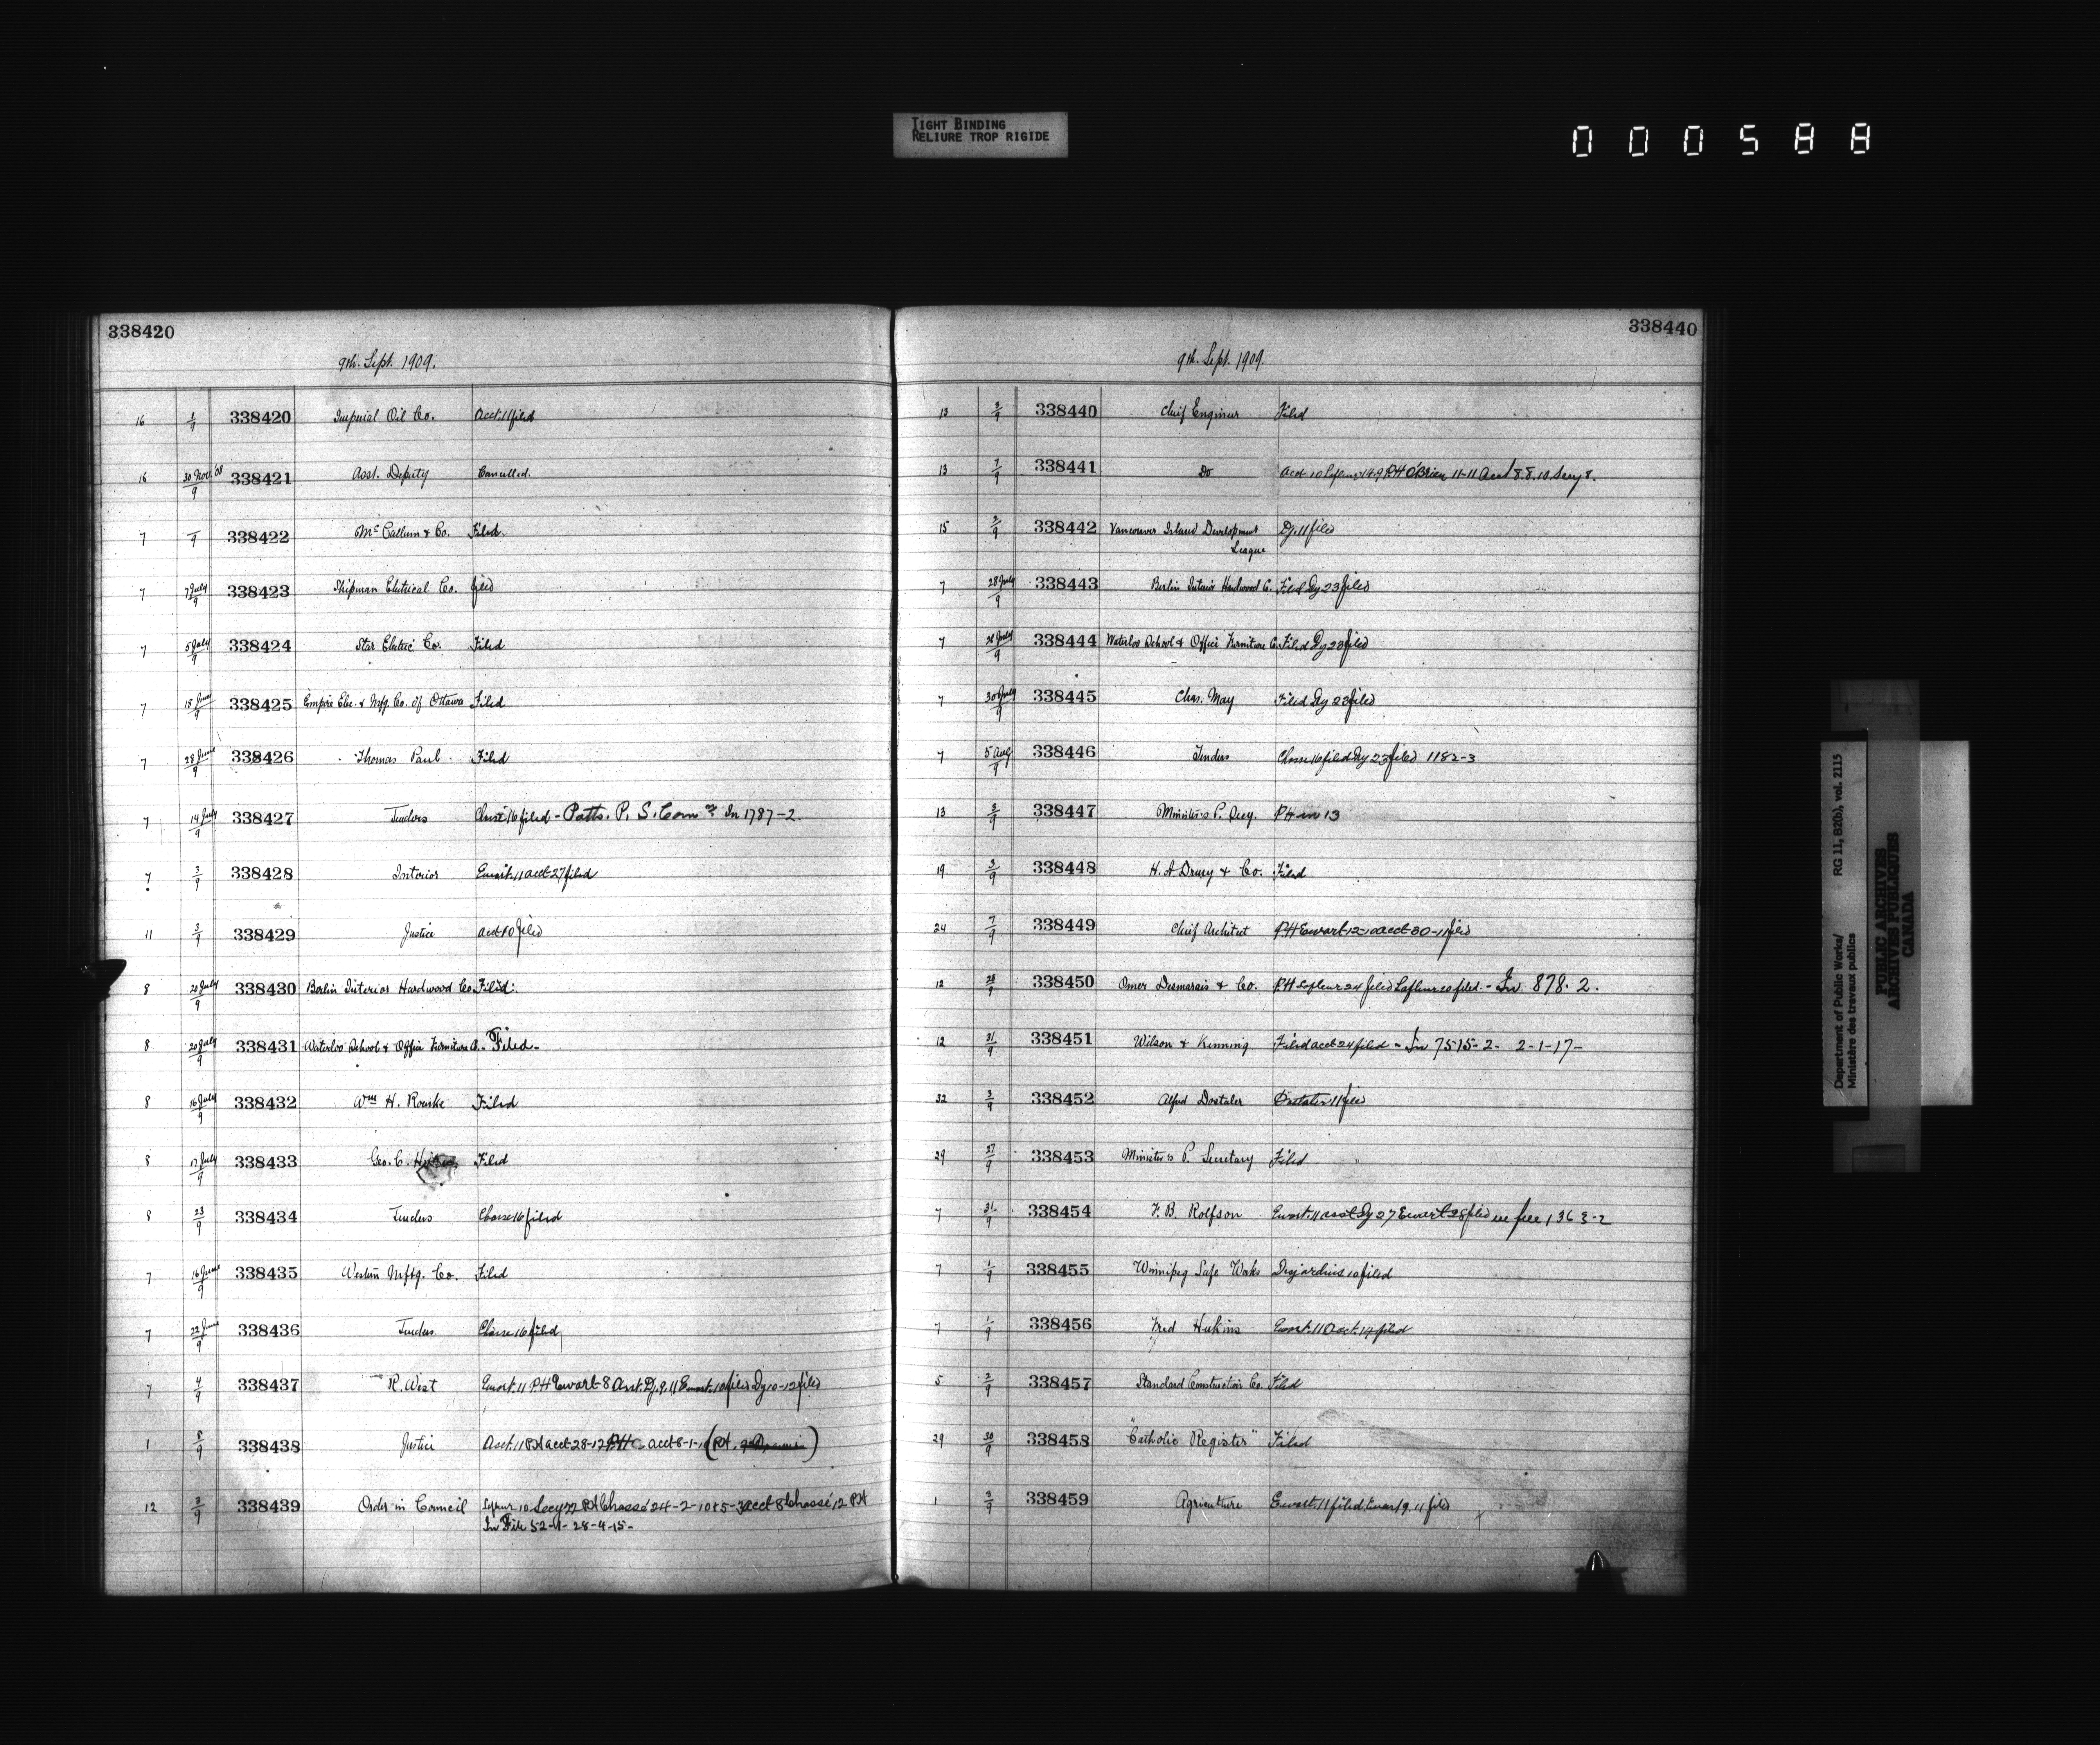 TIGHT BINDING
RELIURE TROP RIGIDE
000588
338420
9th. Sept. 1909.
16 1/9 338420 Imperial Oil Co. Acct. 11 filed
16 30 Nov. '08/9 338421 Asst. Deputy Cancelled.
7 338422 McCallum & Co. Filed.
7 7 July/9 338423 Shipman Electrical Co. filed
7 5 July/9 338424 Star Electric Co. Filed
7 18 June/9 338425 Empire Elec. & Mfg. Co. of Ottawa Filed
7 28 June/9 338426 Thomas Paul Filed
7 14 July/9 338427 Tenders 16 filed - Potts. P. S. Com In 1787-2
7 3/9 338428 Interior Ewart. 11 acct 27 filed
11 3/9 338429 Justice acct 10 filed
8 20 July/9 338430 Berlin Interior Hardwood Co. Filed.
8 20 July/9 338431 Waterloo School & Office Furniture Co. - Filed -
8 16 July/9 338432 Wm H. Rourke Filed
8 17 July/9 338433 Geo. C. Filed
8 23/9 338434 Tenders Chasse 16 filed
7 16 June/9 338435 Western Mftg. Co. Filed
7 22 June/9 338436 Tenders Chasse 16 filed
7 4/9 338437 R. West Ewart. 11 PH Ewart 8 Asst. Dy. 9. 11 Ewart. 10 filed Dy 10-12 filed
1 8/9 338438 Justice Acct. 11 PH acct 28-12 PH acct 8-1-10
12 3/9 338439 Order in Council 10 Secy 22 PH Chassé 24-2-10 acct 8 Chassé 12 PH
In File 52-1- 28-4-15-
338440
9th. Sept. 1909.
13 3/9 338440 Chief Engineer Filed
13 7/9 338441 Do PH O'Brien 11-11 Acct 8.8.10 Secy 8.
15 2/9 338442 Vancouver Island Development Dy. 11 filed
League
7 28 July/9 338443 Berlin Interior Hardwood Co. Filed Dy 23 filed
7 28 July/9 338444 Waterloo School & Office Furniture Co. Filed Dy 23 filed
7 30 July/9 338445 Chas. May Filed Dy 23 filed
7 5 Aug/9 338446 Tenders Chasse 16 filed Dy 23 filed 1182-3
13 3/9 338447 Minister's P. Secy. PH in 13
19 3/9 338448 H. A Drury & Co. Filed
24 7/9 338449 Chief Architect PH Ewart 12-10 acct 30-11 filed
12 28/9 338450 Omer Desmarais & Co. PH Lafleur 24 filed Lafleur 20 filed. - In 878-2.
12 31/9 338451 Wilson & Kinning Filed acct 24 filed - In 7515-2- 2-1-17-
32 3/9 338452 Alfred Dostaler Dostaler 11 filed
29 27/9 338453 Minister's P. Secretary Filed
7 31/9 338454 F. B. Rolfson Ewart. 11 asst Dy 27 Ewart 28 filed in file 1363-2
7 1/9 338455 Winnipeg Safe Works Desjardins 10 filed
7 1/9 338456 Fred Hukins Ewart. 11 Acct. 14 filed
5 2/9 338457 Standard Construction Co. Filed
29 30/9 338458 "Catholic Register" Filed
1 2/9 338459 Agriculture Ewart. 11 filed. Ewart 9. 11 filed
Department of Public Works/ RG 11, B2(b), vol. 2115
Ministère des travaux publics
PUBLIC ARCHIVES
ARCHIVES PUBLIQUES
CANADA